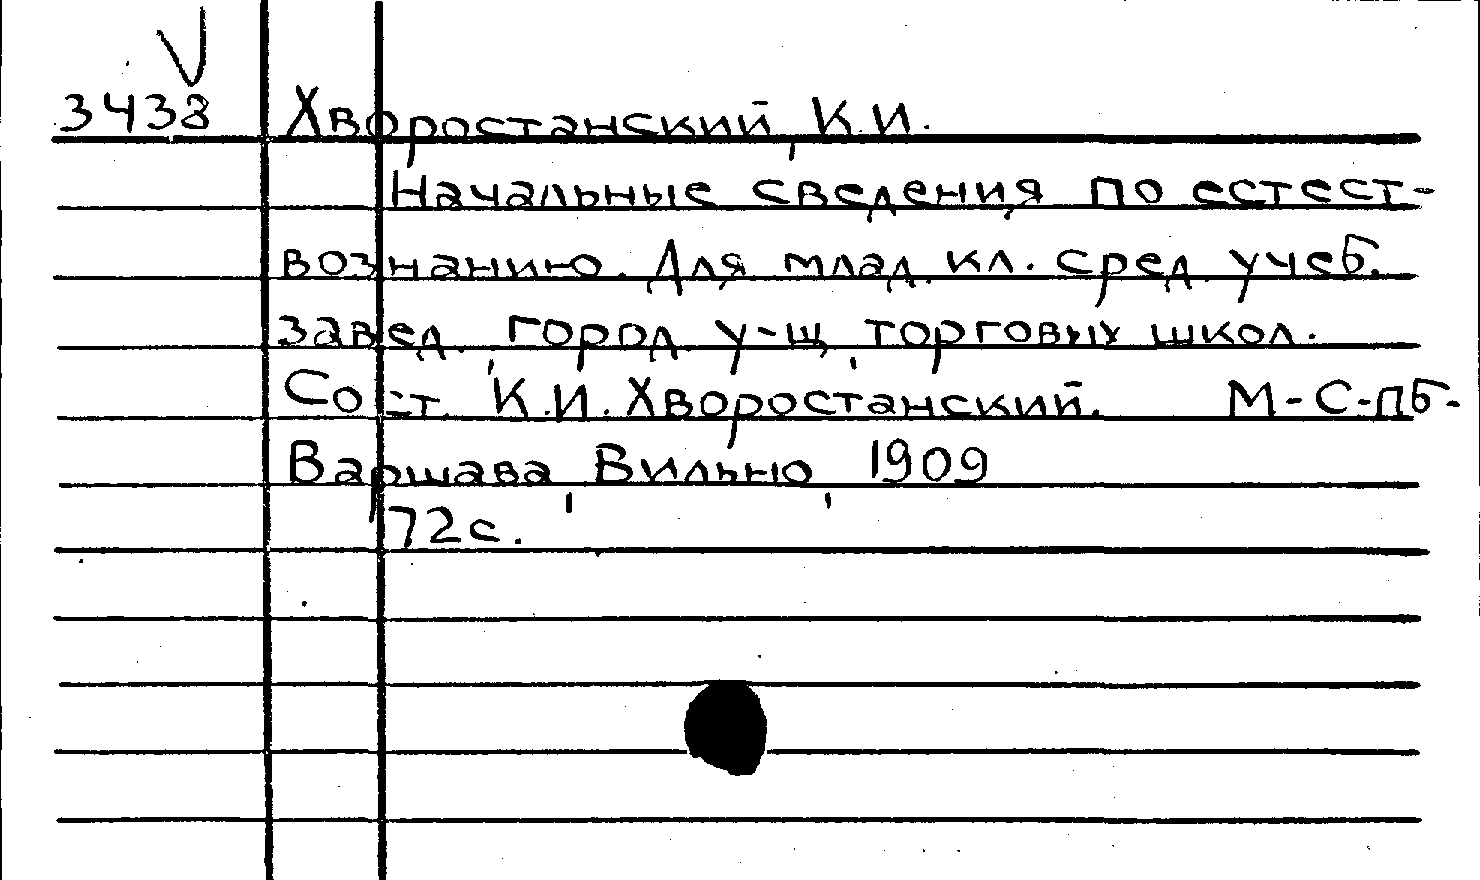 V
3438 Хворостанский, К.И.
Начальные сведения по естест-
вознанию. Для млад. кл. сред. учеб.
завед., город. у-щ, торговых школ.
Сост. К.И. Хворостанский. М-С-ПБ-
Варшава, Вильно, 1909
72с.